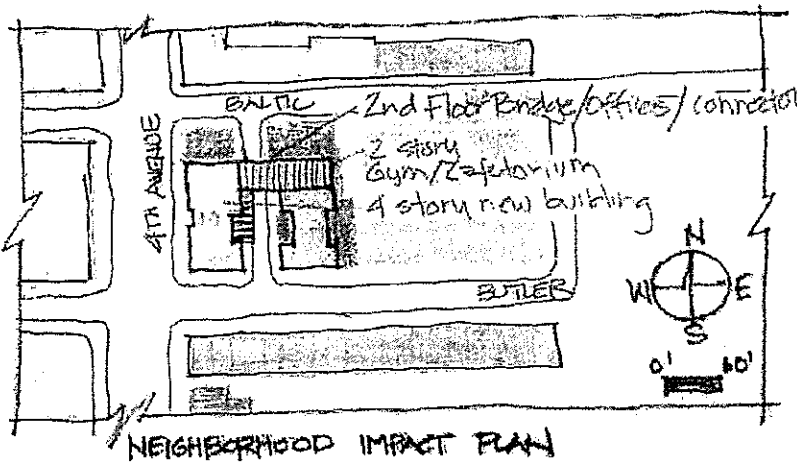 BALTIC
2nd Floor Bridge/Offices/connector
2 story
Gym/Cafetorium
4 story new building
4TH AVENUE
BUTLER
N
W E
S
0' 60'
NEIGHBORHOOD IMPACT PLAN